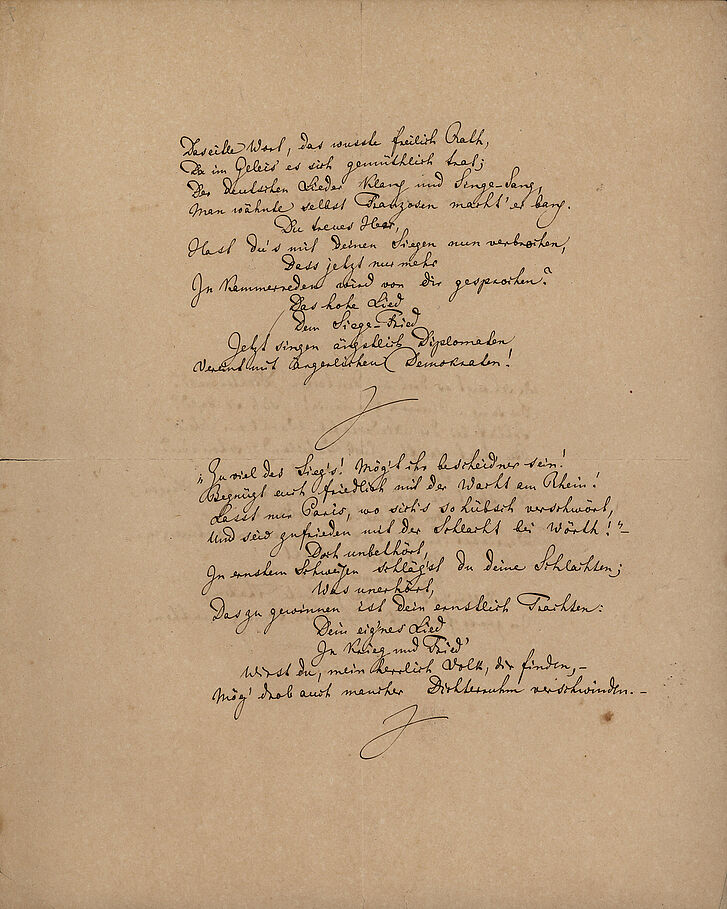 Daseille Wort, das wusste freilich Rath,
Da im Geleis' es sich gemüthlich trat;
Der deutschen Lieder Klang und Singe-Sang,
Man wähnte selbst Franzosen macht' er bang.
Du treues Heer,
Hast du's mit deinen Siegen nun verbrochen,
Dass jetzt nur mehr
In Kammerreden wird von dir gesprochen?
Das hohe Lied
Dem Siege-Fried
Jetzt singen ängstlich Diplomaten
Vereint mit ärgerlichen Demokraten!
„Zu viel des Sieg's! Mögt ihr bescheidner sein!
Begnügt euch friedlich mit der Wacht am Rhein!
Lasst nur Paris, wo sich's so hübsch verschwört,
Und seid zufrieden mit der Schlacht bei Wörth!" –
Doch unbethört,
In ernstem Schweigen schlägst du deine Schlachten;
Was unerhört,
Das zu gewinnen ist dein ernstlich Trachten:
Dein eig'nes Lied
In Krieg und Fried'
Wirst du, mein herrlich Volk, dir finden, –
Mög' drob auch mancher Dichterruhm verschwinden. –